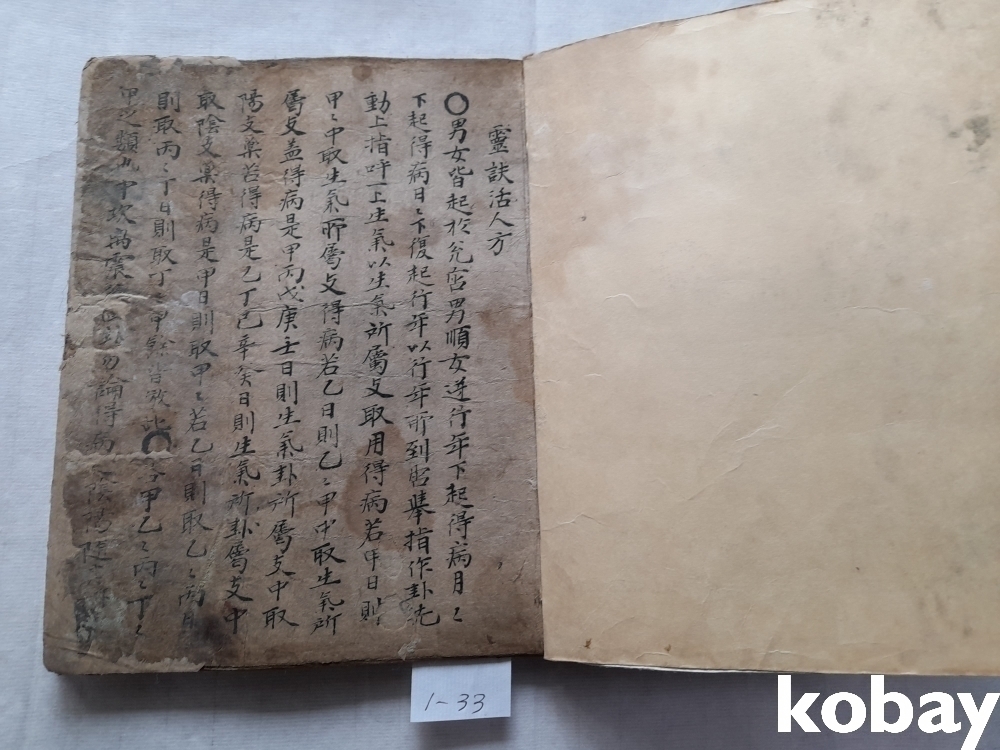 靈訣活人方
〇男女皆起於兌宮男順女逆行年下起得病月〻
下起得病日〻下復起行年以行年所到昭擧指作卦先
動上指呼一上生氣以生氣所屬支取用得病若甲日則
甲〻中取生氣所屬支得病若乙日則乙〻甲中取生氣所
屬支盖得病是甲丙戊庚壬日則生氣卦所屬支中取
陽支藥若得病是乙丁己辛癸日則生氣所卦屬支中
取陰支藥得病是甲日則取甲〻若乙日則取乙〻丙日
則取丙〻丁日則取丁〻皆倣此〇甲乙〻丙〻丁〻
甲之類九中坎震勿論得病陰陽
1-33
kobay